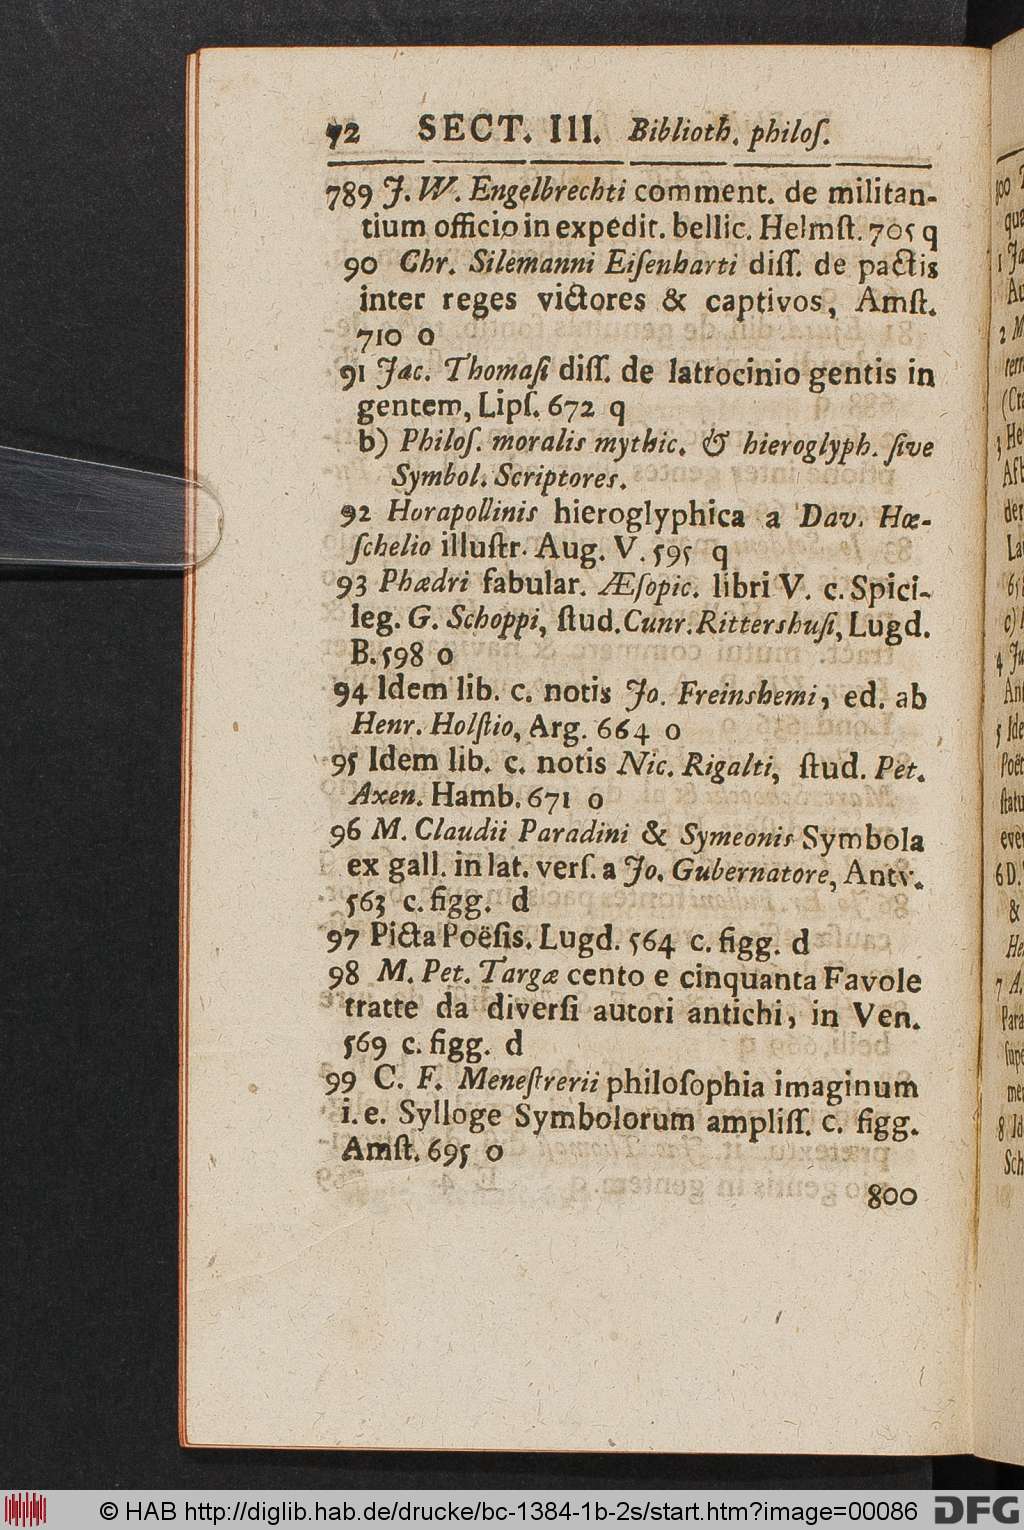 72 SECT. III. Biblioth. philoſ.
789 J. W. Engelbrechti comment. de militan-
tium officio in expedit. bellic. Helmſt. 705 q
90 Chr. Silemanni Eiſenharti diſſ. de pactis
inter reges victores & captivos, Amſt.
710 o
91 Jac. Thomaſi diſſ. de latrocinio gentis in
gentem, Lipſ. 672 q
b) Philoſ. moralis mythic. & hieroglyph. ſive
Symbol. Scriptores.
92 Horapollinis hieroglyphica a Dav. Hœ-
ſchelio illuſtr. Aug. V. 595 q
93 Phædri fabular. Æſopic. libri V. c. Spici-
leg. G. Schoppi, ſtud. Cunr. Rittershuſi, Lugd.
B. 598 o
94 Idem lib. c. notis Jo. Freinshemi, ed. ab
Henr. Holſtio, Arg. 664 o
95 Idem lib. c. notis Nic. Rigalti, ſtud. Pet.
Axen. Hamb. 671 o
96 M. Claudii Paradini & Symeonis Symbola
ex gall. in lat. verſ. a Jo. Gubernatore, Antv.
563 c. figg. d
97 Picta Poëſis. Lugd. 564 c. figg. d
98 M. Pet. Targæ cento e cinquanta Favole
tratte da diverſi autori antichi, in Ven.
569 c. figg. d
99 C. F. Meneſtrerii philoſophia imaginum
i. e. Sylloge Symbolorum ampliſſ. c. figg.
Amſt. 695 o
800
© HAB http://diglib.hab.de/drucke/bc-1384-1b-2s/start.htm?image=00086
DFG